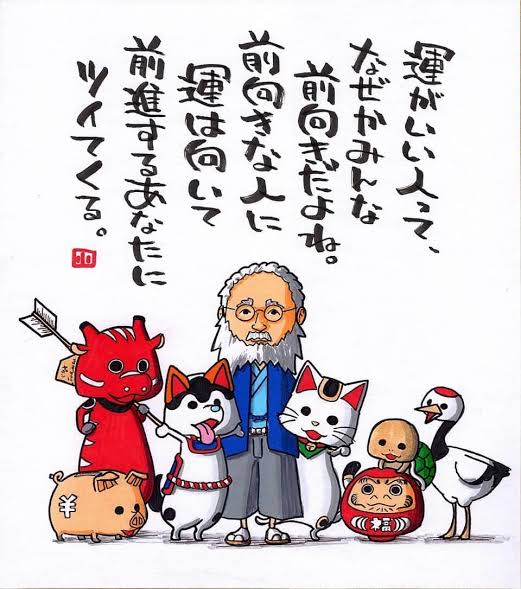 運がいい人って、
なぜかみんな
前向きだよね。
前向きな人に
運は向いて
前進するあなたに
ツイてくる。
¥
福